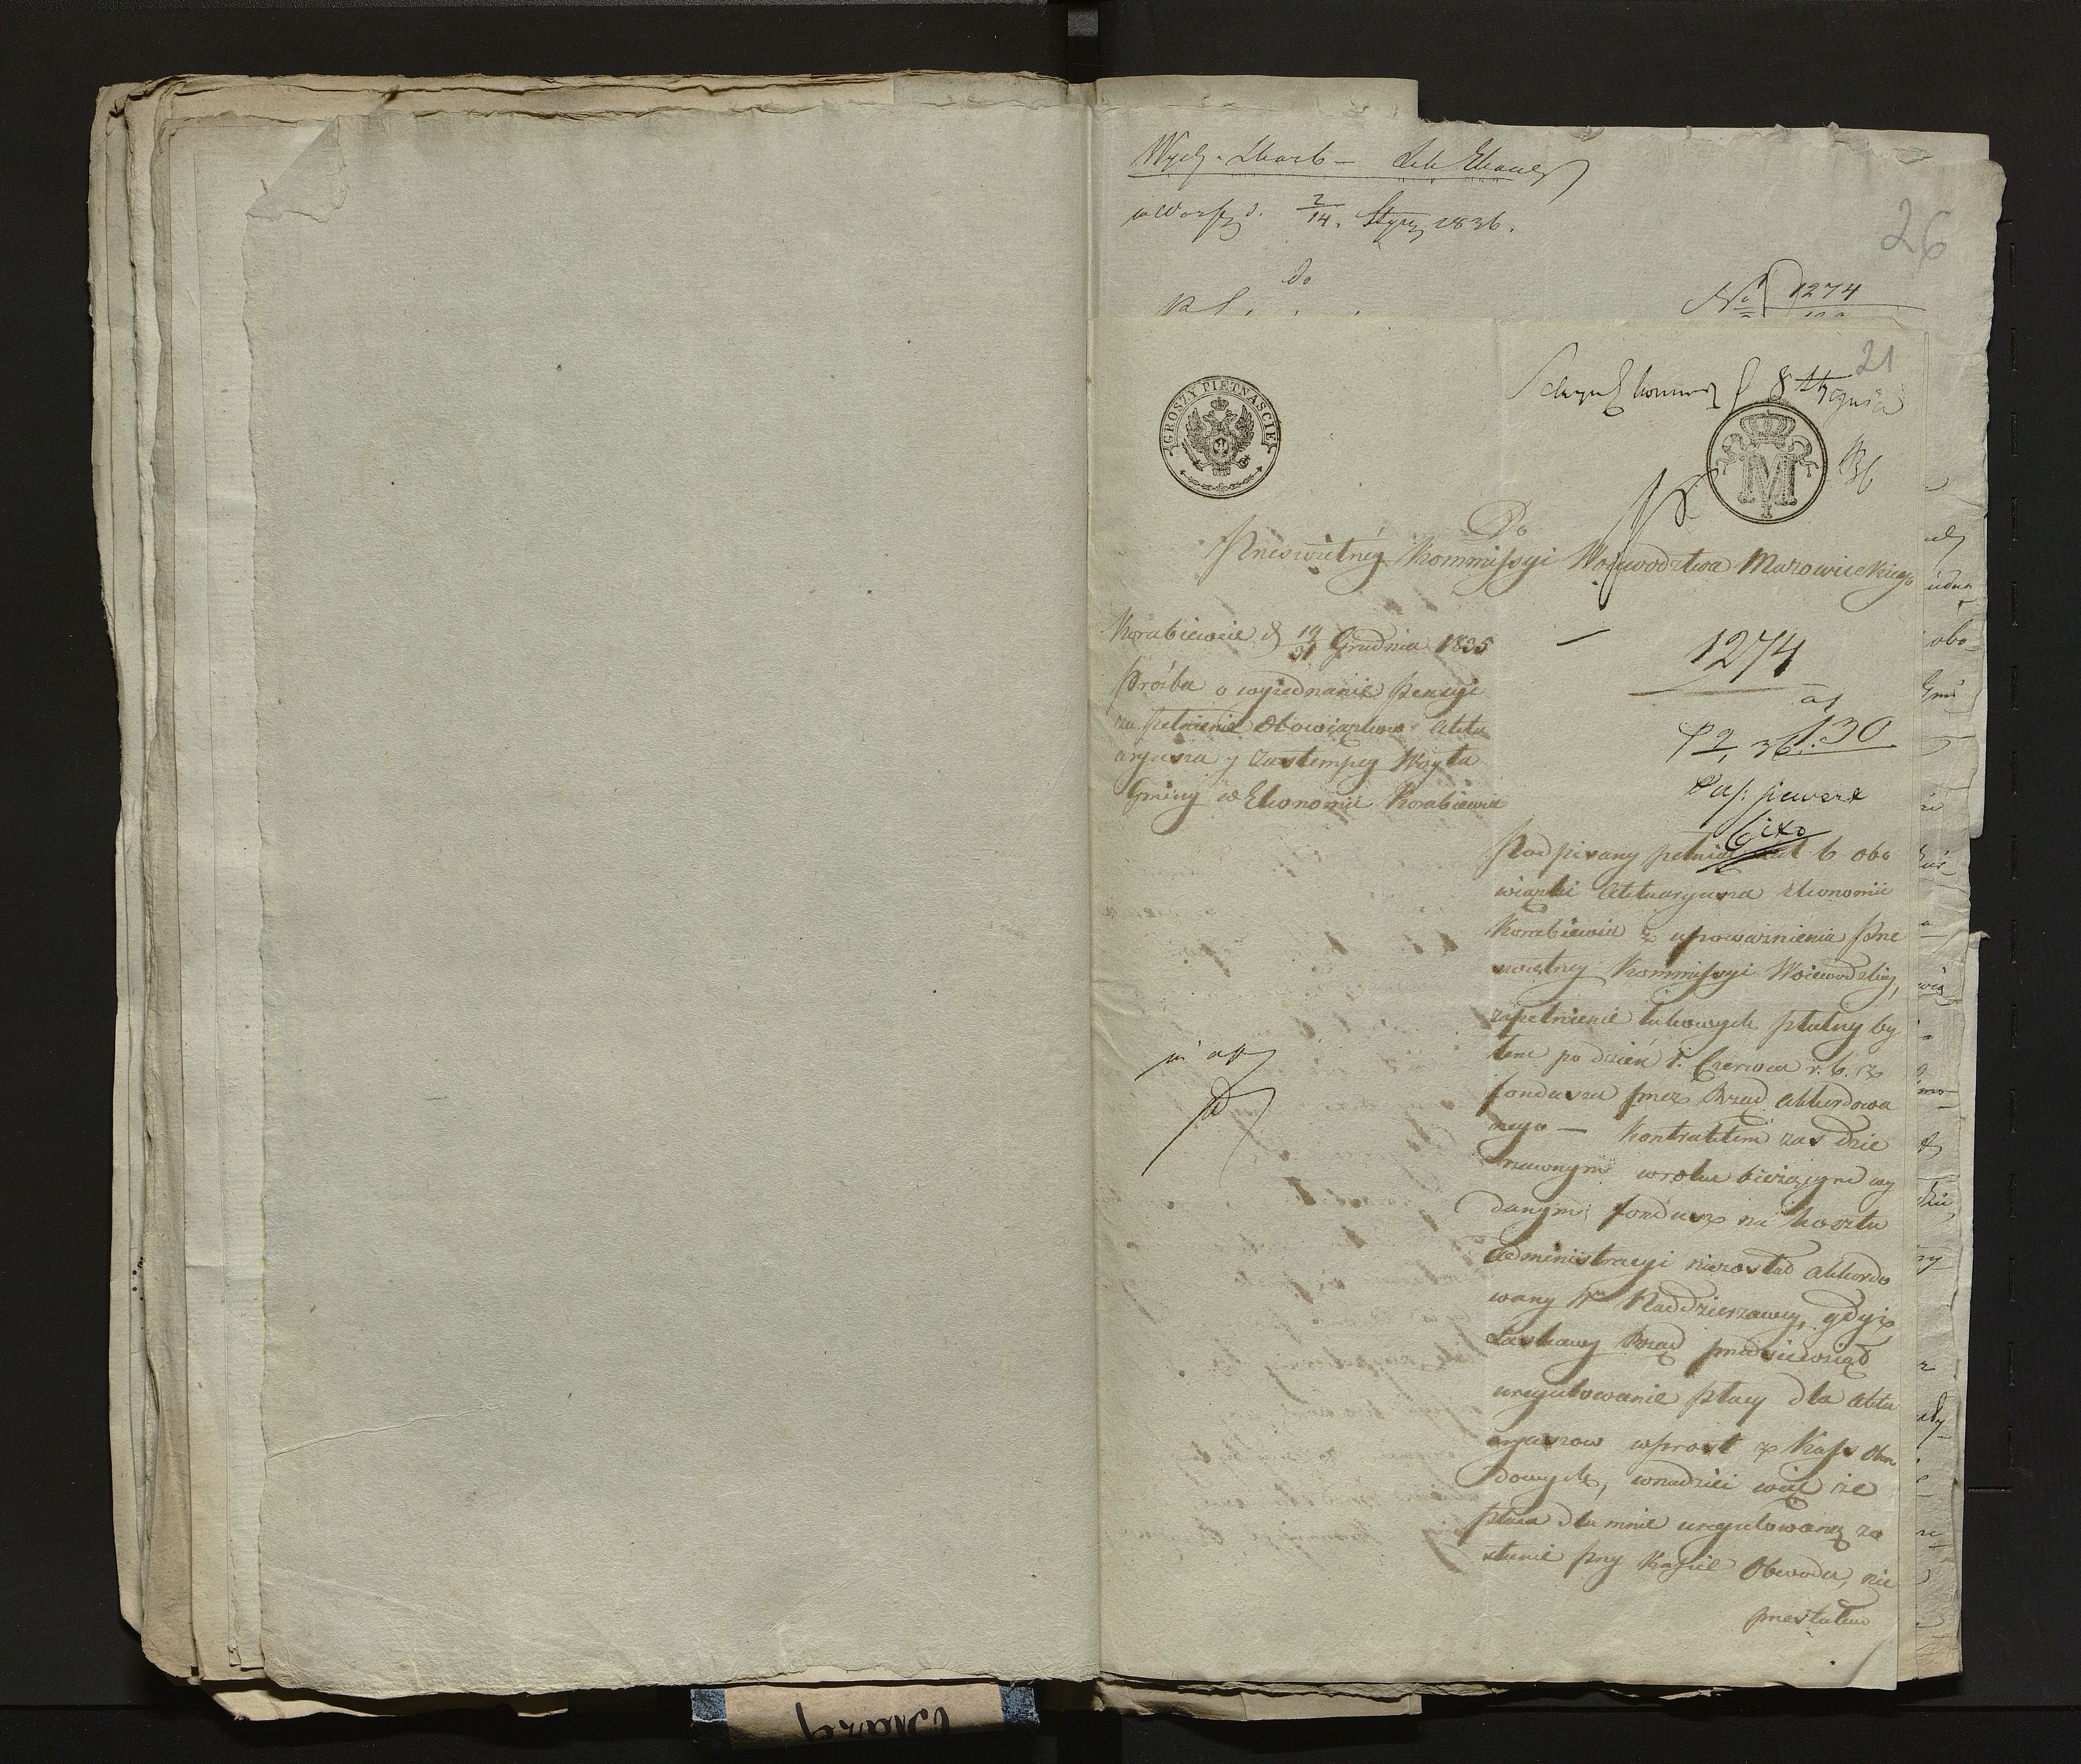 Wydz. Skarb –
w Warsz. d. 2/14. Stycz. 1836.
26
do
No 1274
21
8 Stycznia
836
GROSZY PIĘTNAŚCIE
M
Do
Prześwietney Kommissyi Woiewodztwa Mazowieckiego
Korabiewice d 19/31 Grudnia 1835
Prośba o wyiednanie Pensyi
za pełnienie Obowiązkow Aktu
aryusza y Zastempcy Woyta
Gminy w Ekonomii Korabiewice
1274
130
Podpisany pełniąc lat 6 obo
wiązki Aktuaryusza Ekonomii
Korabiewice z upoważnienia Prze
swietney Kommissyi Woiewodzkiey,
za pełnienie takowych płatny by
łem po dzień 1. Czerwca r. b. z
fonduszu przez Rząd akkordowa
nego — Kontraktem zas dzie
rzawnym w roku bieżącym wy
danym, fondusz na koszta
Administracyi niezostał akkordo
wany Pu Naddzierzawcy, gdyż
Łaskawy Rząd przedsiewziął
uregulowanie płacy dla Aktu
aryuszow wprost z Kass Obwo
dowych, w nadziei więc że
płaca dla mnie uregulowaną zo
stanie przy Kassie Obwodu, nie
przestałem